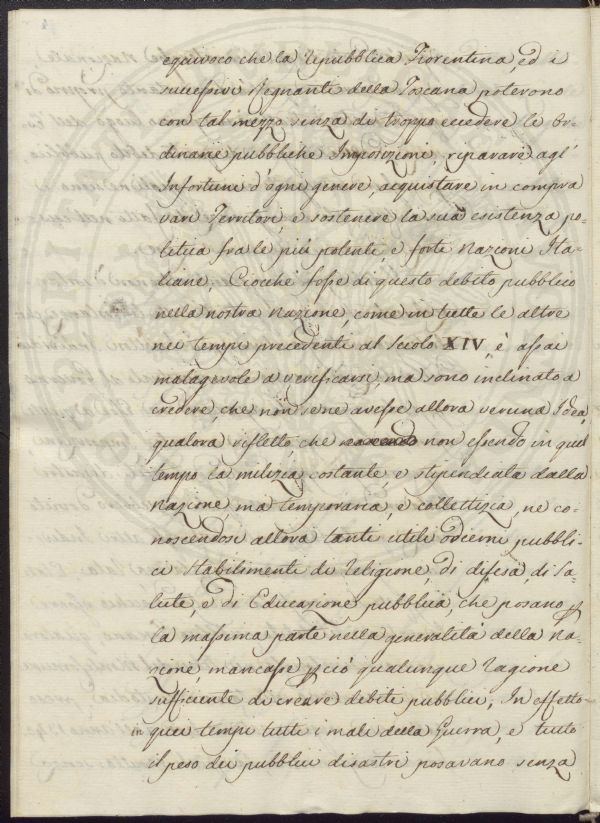 equivoco che la Repubblica Fiorentina, ed i
successivi Regnanti della Toscana poterono
con tal mezzo senza di troppo eccedere le Or-
dinarie pubbliche Imposizioni, riparare agl'
Infortunj d'ogni genere, acquistare in compra
varj Territorj, e sostenere la sua esistenza po-
litica fra le più potenti, e forti Nazioni Ita-
liane. Ciocchè fosse di questo debito pubblico
nella nostra Nazione, come in tutte le altre
nei tempi precedenti al Secolo XIV, è assai
malagevole a verificarsi, ma sono inclinato a
credere, che non se ne avesse allora veruna Idea,
qualora rifletto, che non essendo in quel
tempo la milizia costante, e stipendiata dalla
Nazione, ma temporaria, e collettizia, ne co-
noscendosi allora tanti utili odierni pubbli-
ci Stabilimenti di Religione, di difesa, di Sa-
lute, e di Educazione pubblica, che posano p
la massima parte nella generalità della Na-
zione, mancasse p ciò qualunque ragione
sufficiente di creare debiti pubblici. In effetto
in quei tempi tutti i mali della Guerra, e tutto
il peso dei pubblici disastri posavano senza